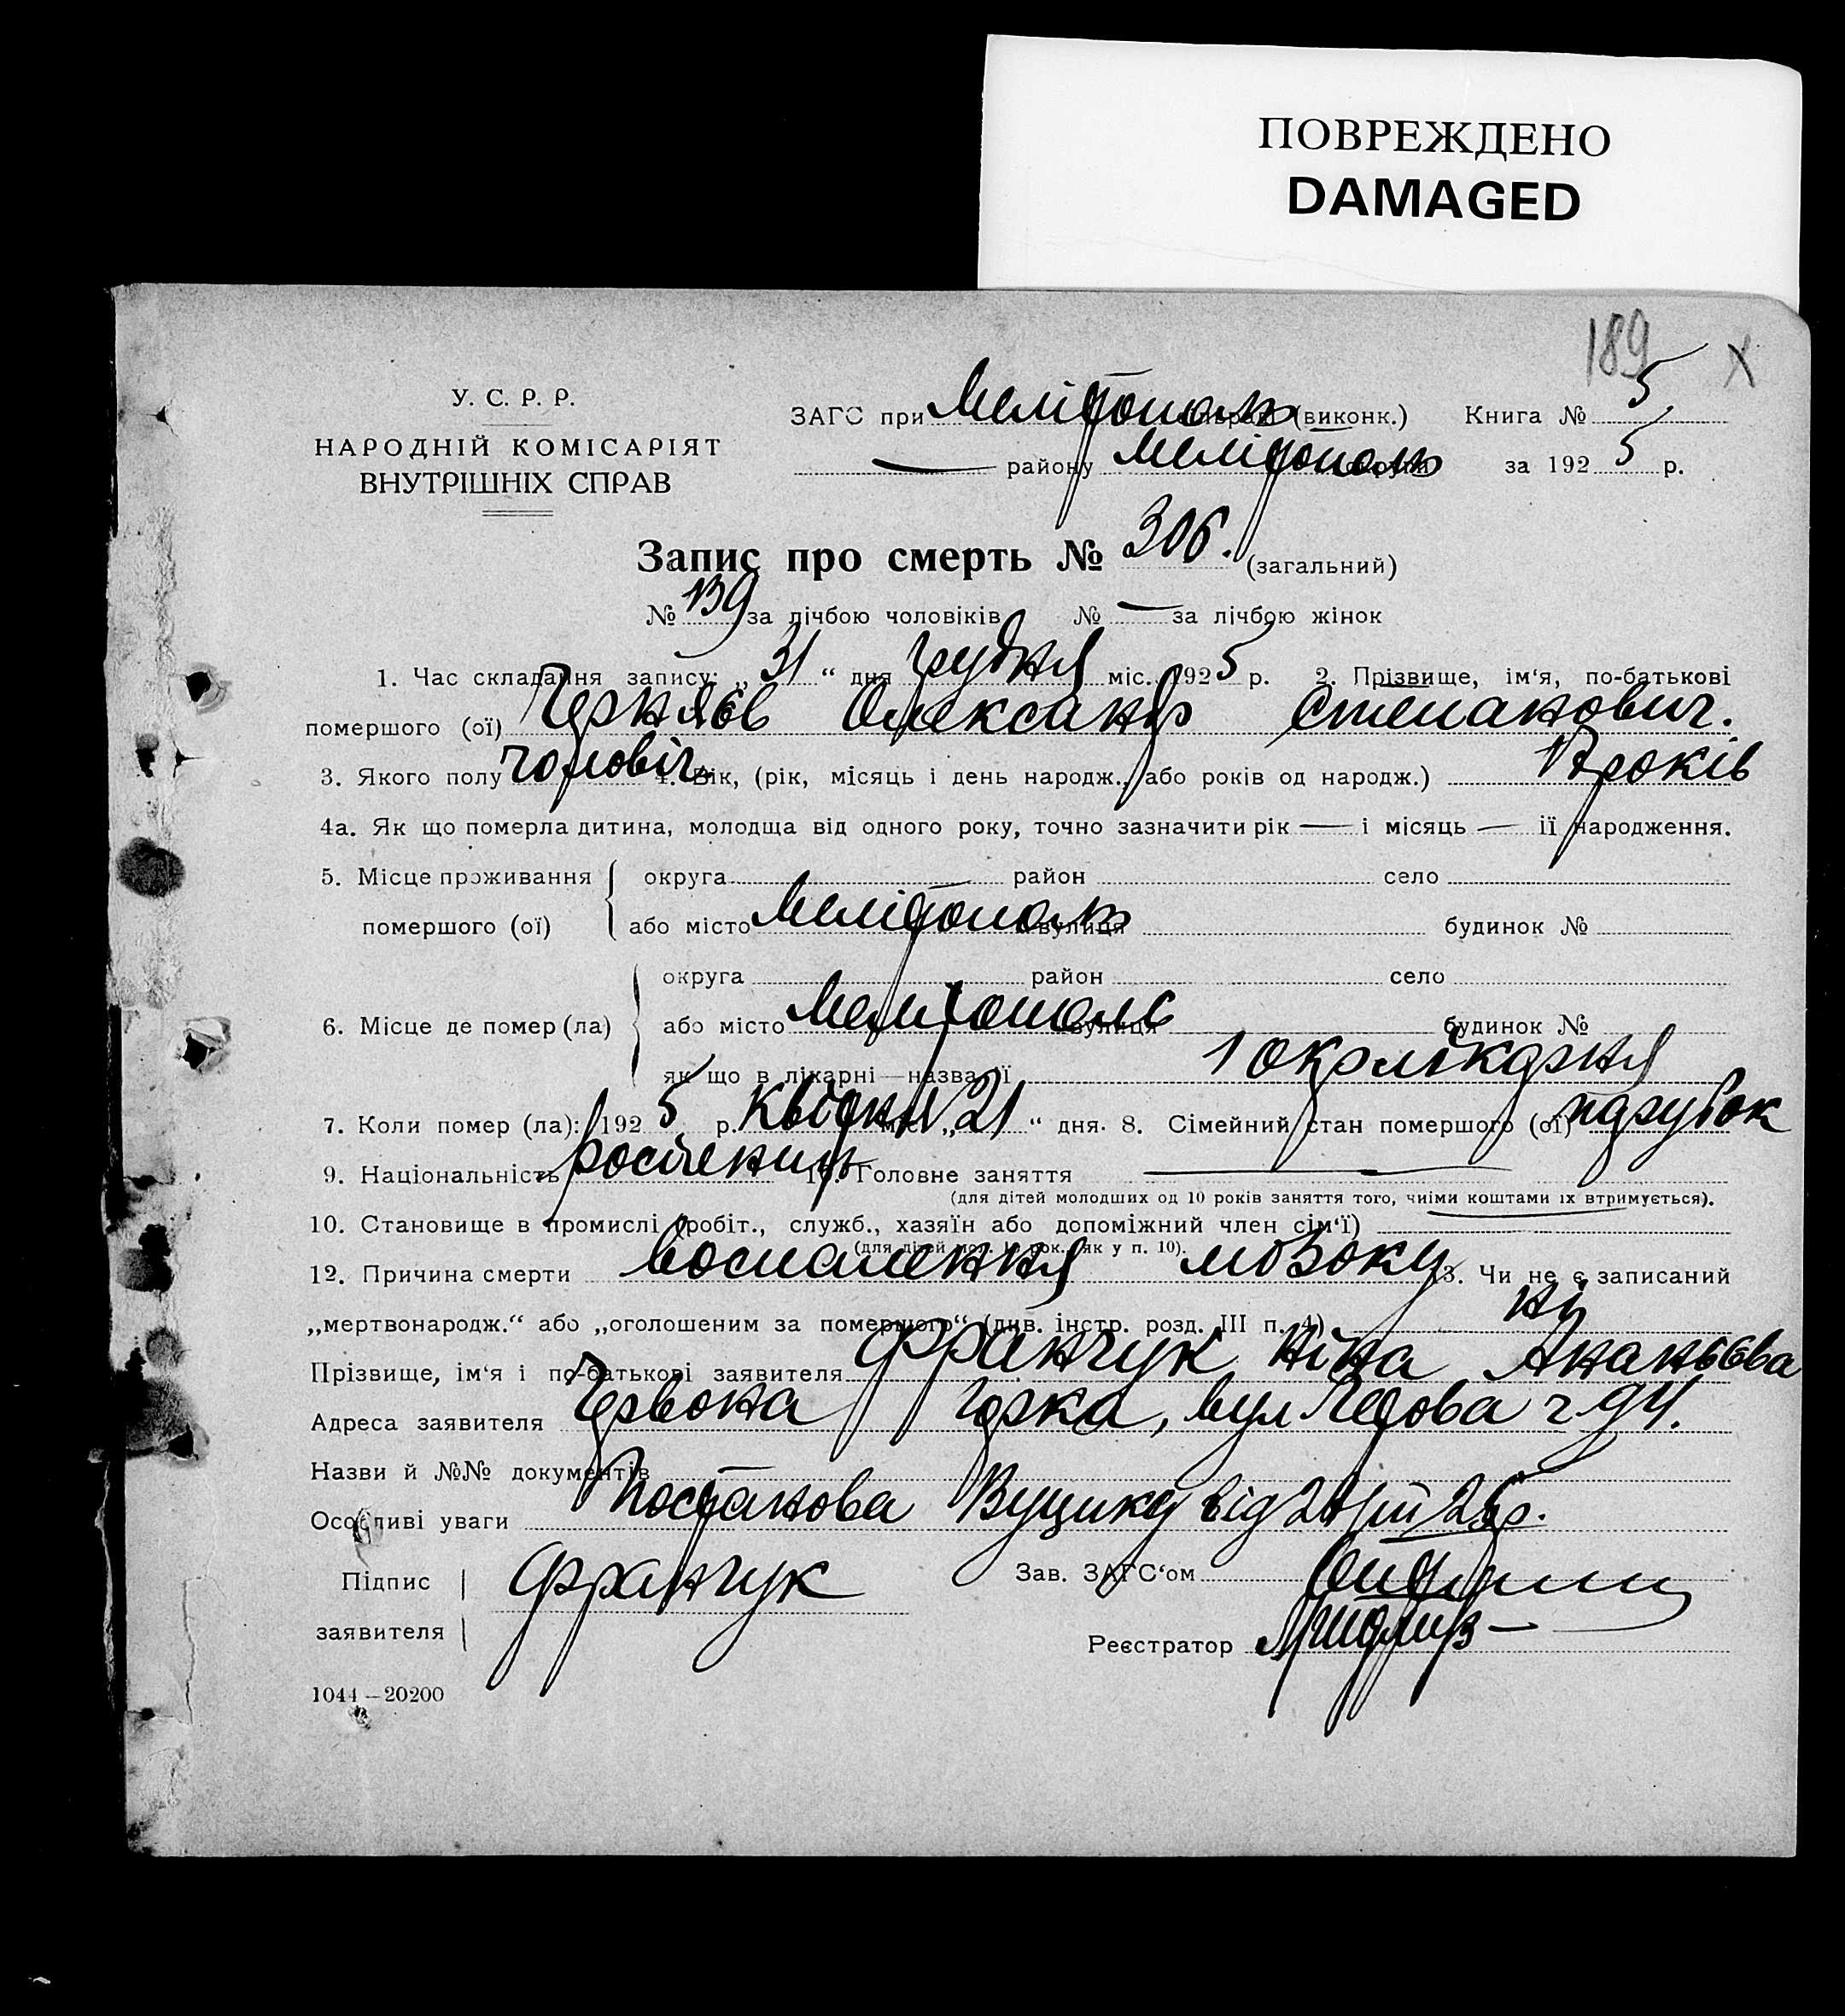 ПОВРЕЖДЕНО
DAMAGED
189 X
У. С. Р. Р.
НАРОДНІЙ КОМІСАРІЯТ
ВНУТРІШНІХ СПРАВ
ЗАГС при Мелітополь (виконк.) Книга № 5
— району Мелітополь округи за 1925 р.
Запис про смерть № 306. (загальний)
№ 139 за лічбою чоловіків № — за лічбою жінок
1. Час складання запису: „31“ дня грудня міс. 1925 р. 2. Прізвище, ім‘я, по-батькові
помершого (ої) Черняєв Олександр Степанович.
3. Якого полу чоловіч. 4. Вік, (рік, місяць і день народж., або років од народж.) 17 років
4а. Як що померла дитина, молодша від одного року, точно зазначити рік — і місяць — її народження.
5. Місце проживання округа район село
помершого (ої) або місто Мелітополь вулиця будинок №
округа район село
6. Місце де помер (ла) або місто Мелітополь вулиця будинок №
як що в лікарні—назва її 1 окрлікарня
7. Коли помер (ла): 1925 р. квітня міс. „21“ дня. 8. Сімейний стан помершого (ої) парубок
9. Національність росіянин 10. Головне заняття —
(для дітей молодших од 10 років заняття того, чиїми коштами їх втримується).
10. Становище в промислі (робіт., служб., хазяїн або допоміжний член сім‘ї)
(для дітей мол. 10 рок. як у п. 10).
12. Причина смерти воспалення мозоку 13. Чи не є записаний
„мертвонародж.“ або „оголошеним за помершого“ (див. інстр. розд. III п. 4) ні
Прізвище, ім‘я і по-батькові заявителя Франчук Ніна Ананьєва
Адреса заявителя Червона Горка, вул ч 94.
Назви й №№ документів
Особливі уваги Постанова Вуцику від
Підпис Франчук Зав. ЗАГС‘ом
заявителя Реєстратор
1044—20200